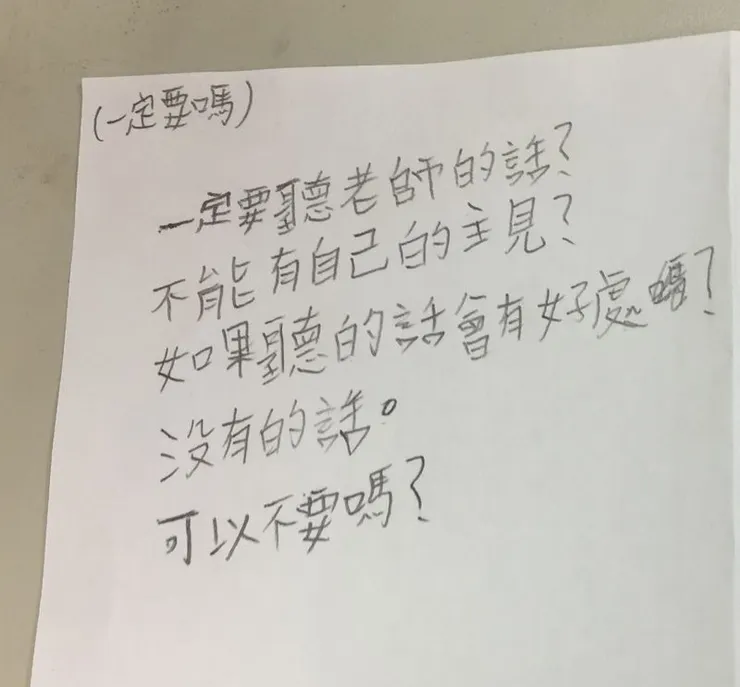 (一定要嗎)
一定要聽老師的話?
不能有自己的主見?
如果聽的話會有好處嗎?
沒有的話。
可以不要嗎?